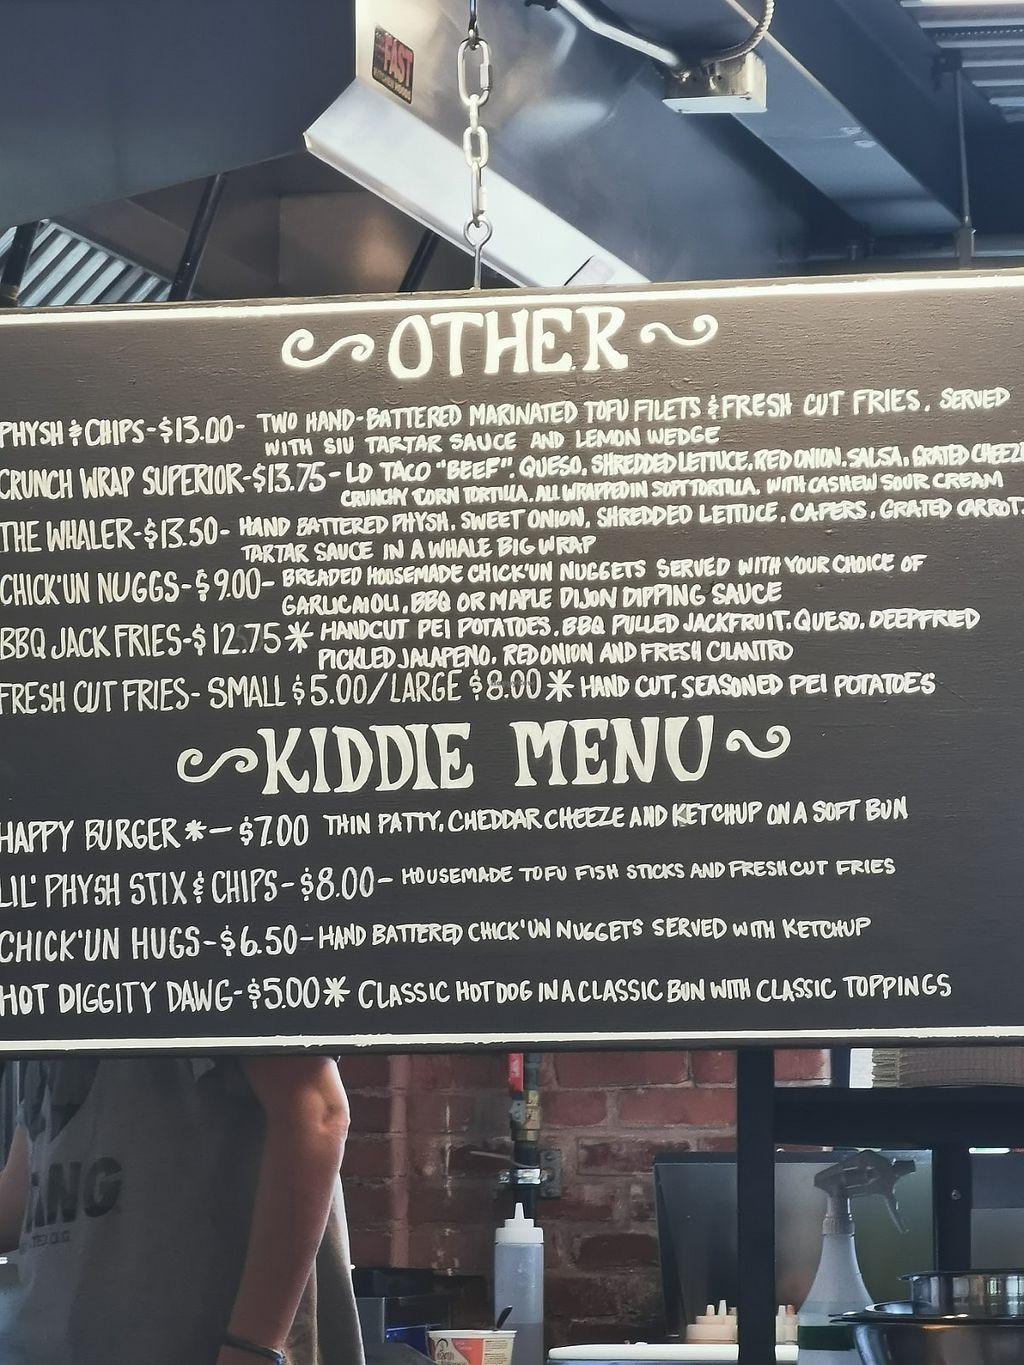 FAST
OTHER
PHYSH & CHIPS-$13.00- TWO HAND-BATTERED MARINATED TOFU FILETS & FRESH CUT FRIES. SERVED
WITH SIU TARTAR SAUCE AND LEMON WEDGE
CRUNCH WRAP SUPERIOR-$13.75- LD TACO "BEEF", QUESO, SHREDDED LETTUCE, RED ONION, SALSA, GRATED CHEEZE
CRUNCHY CORN TORTILLA, ALL WRAPPED IN SOFT TORTILLA, WITH CASHEW SOUR CREAM
THE WHALER-$13.50- HAND BATTERED PHYSH, SWEET ONION, SHREDDED LETTUCE, CAPERS, GRATED CARROT,
TARTAR SAUCE IN A WHALE BIG WRAP
CHICK'UN NUGGS-$9.00- BREADED HOUSEMADE CHICK'UN NUGGETS SERVED WITH YOUR CHOICE OF
GARLIC AIOLI, BBQ OR MAPLE DIJON DIPPING SAUCE
BBQ JACK FRIES-$12.75* HANDCUT PEI POTATOES, BBQ PULLED JACKFRUIT, QUESO, DEEPFRIED
PICKLED JALAPENO, RED ONION AND FRESH CILANTRO
FRESH CUT FRIES- SMALL $5.00/LARGE $8.00* HAND CUT, SEASONED PEI POTATOES
KIDDIE MENU
HAPPY BURGER*-$7.00 THIN PATTY, CHEDDAR CHEEZE AND KETCHUP ON A SOFT BUN
LIL' PHYSH STIX & CHIPS-$8.00- HOUSEMADE TOFU FISH STICKS AND FRESH CUT FRIES
CHICK'UN HUGS-$6.50- HAND BATTERED CHICK'UN NUGGETS SERVED WITH KETCHUP
HOT DIGGITY DAWG-$5.00* CLASSIC HOTDOG IN A CLASSIC BUN WITH CLASSIC TOPPINGS